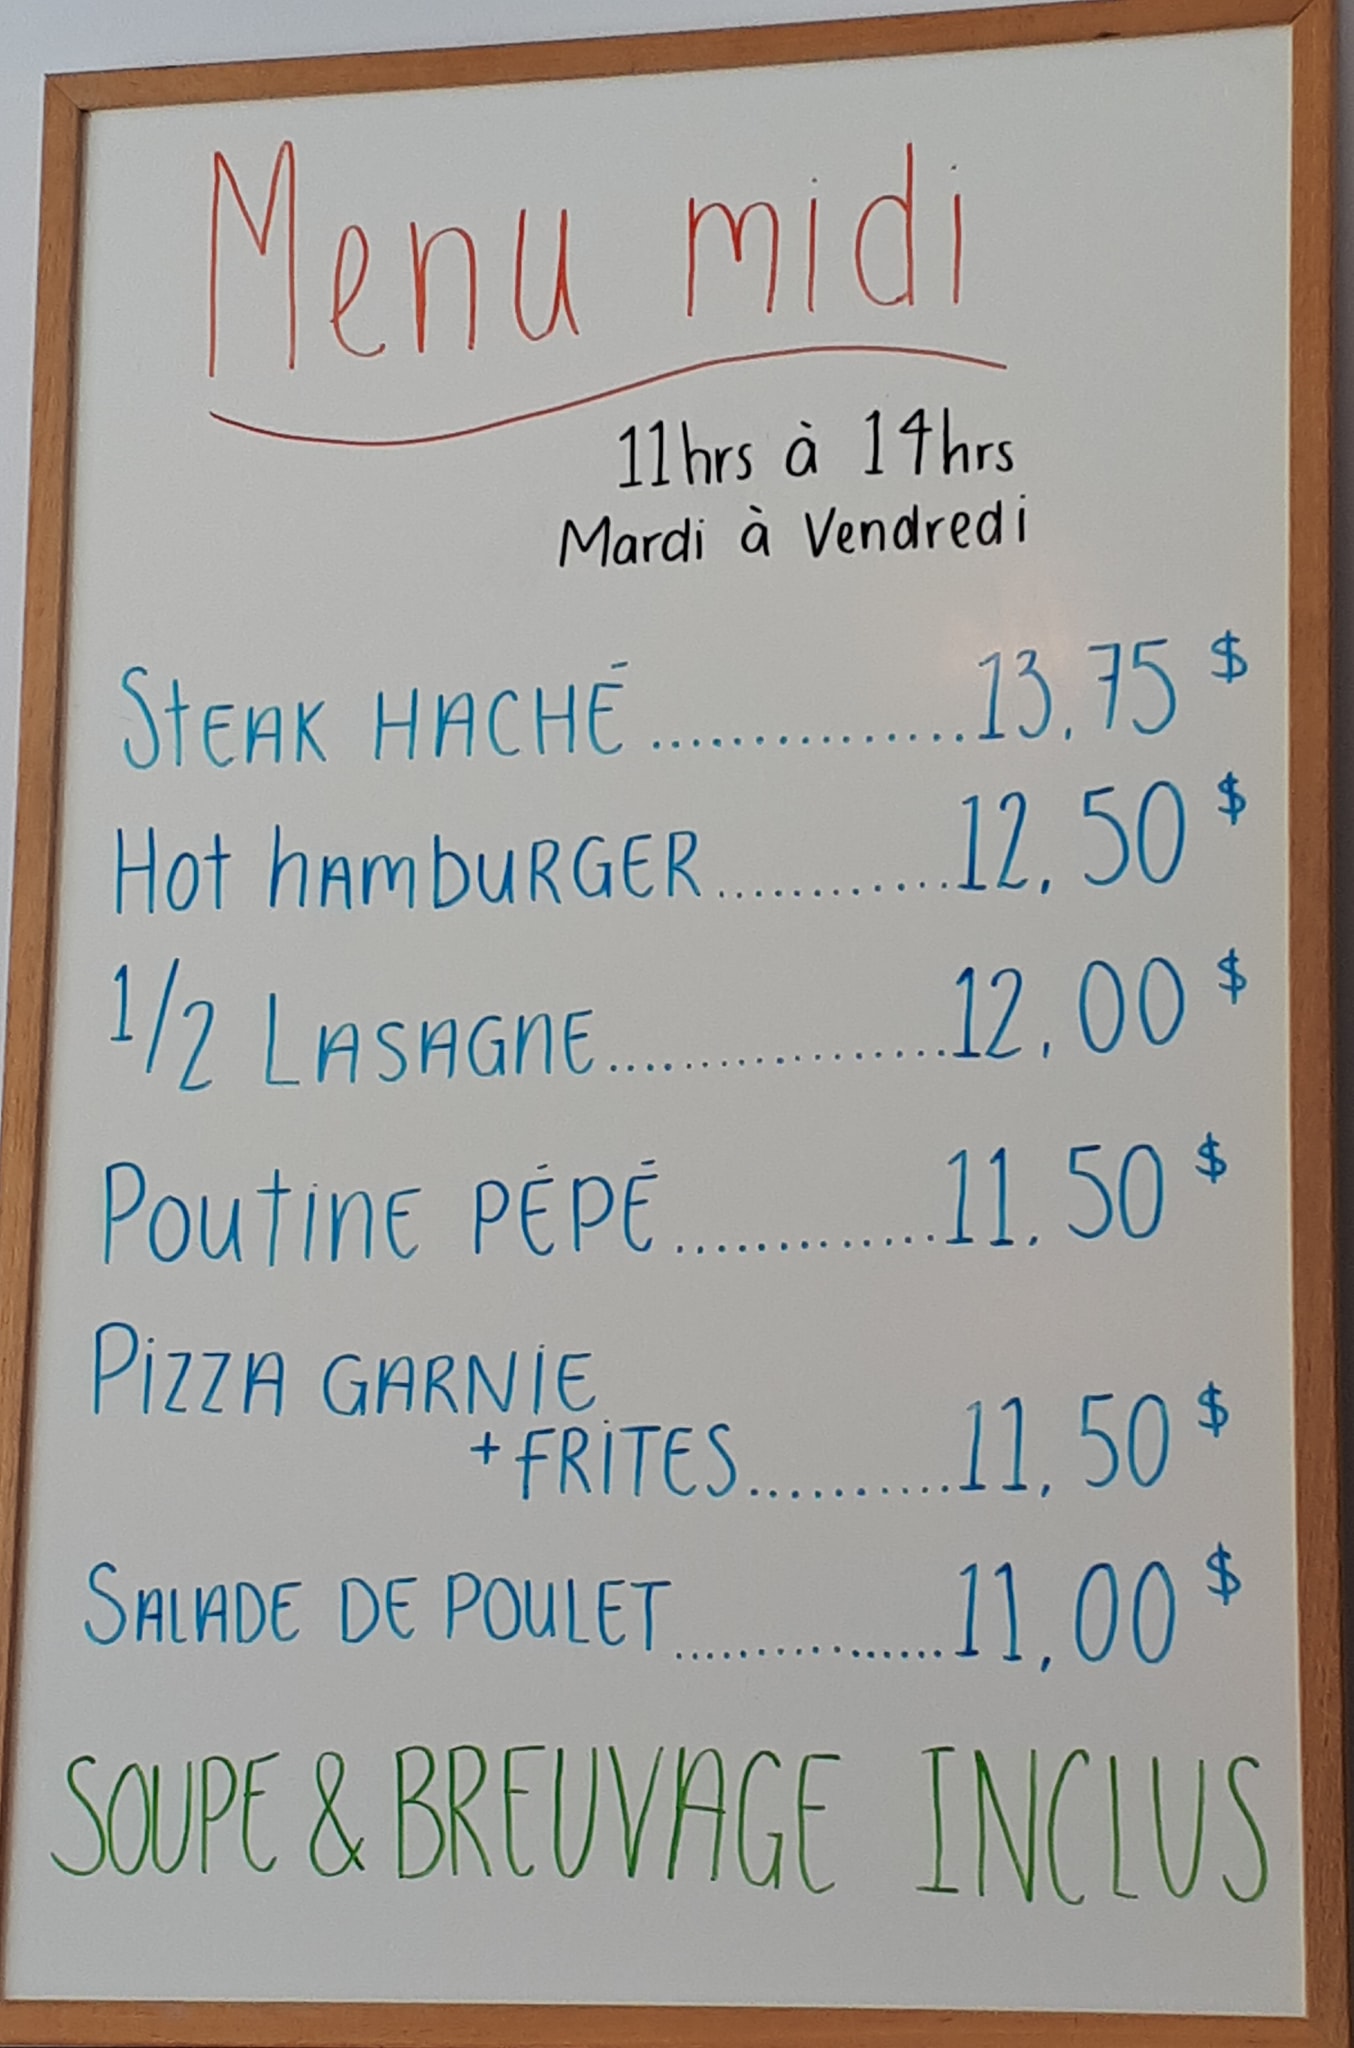 Menu midi
11hrs à 14hrs
Mardi à Vendredi
STEAK HACHÉ...............13,75$
Hot hAmbURGER............12,50$
1/2 LASAGNE..................12,00$
POUTINE PÉPÉ.............11,50$
PIZZA GARNIE
+ FRITES..........11,50$
SALADE DE POULET..............11,00$
SOUPE & BREUVAGE INCLUS